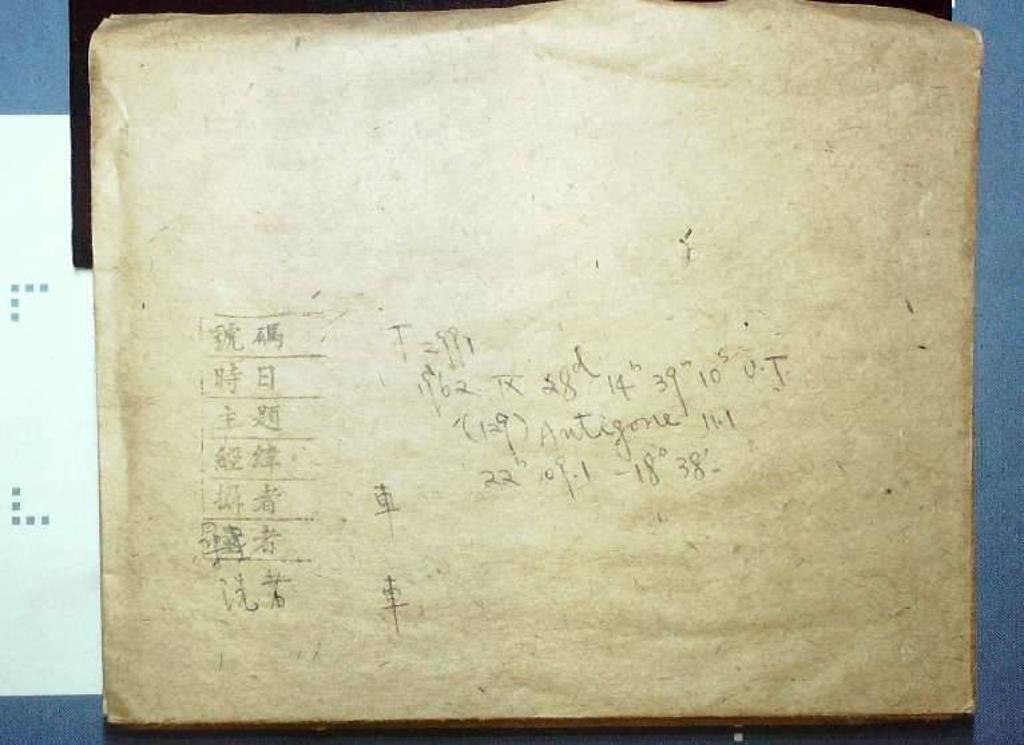 號碼 T=991
時日 1962 IX 28d 14h 39m 10s U.T.
主題 (129) Antigone 11.1
經緯 22h 09.1 -18° 38'
攝者 車
者
洗者 車